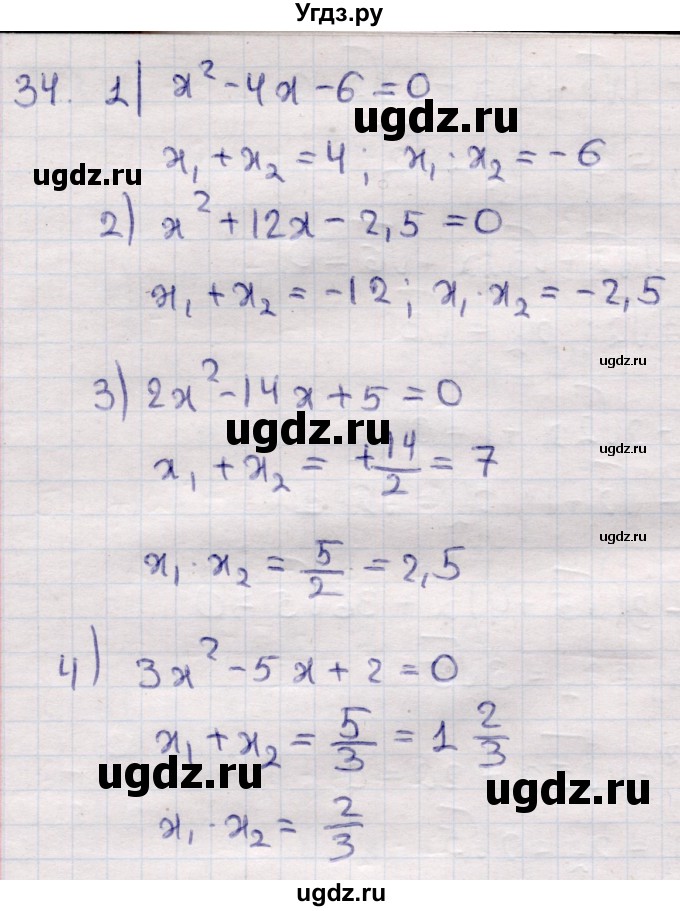 Угдз.ру
34. 1) x² - 4x - 6 = 0
ugdz.ru
x₁ + x₂ = 4; x₁ · x₂ = -6
ugdz.ru
2) x² + 12x - 2,5 = 0
x₁ + x₂ = -12; x₁ · x₂ = -2,5
ugdz.ru
3) 2x² - 14x + 5 = 0
ugdz.ru
x₁ + x₂ = +14/2 = 7
ugdz.ru
ugdz.ru
x₁ · x₂ = 5/2 = 2,5
4) 3x² - 5x + 2 = 0
x₁ + x₂ = 5/3 = 1 2/3
ugdz.ru
ugdz.ru
x₁ · x₂ = 2/3
ugdz.ru